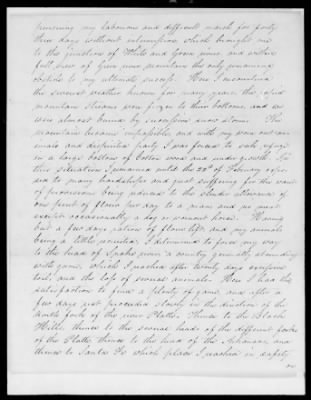 pursuing my laborious and difficult march for forty
three days without intermission which brought me
to the junction of White and Green rivers and within
full view of Green river mountain the only remaining
obstacle to my ultimate success. Here I encountered
the severest weather known for many years the rapid
mountain streams were frozen to their bottoms, and we
were almost buried by successive snow storms. The
mountains became impassible and with my worn out an
imals and dispirited party I was forced to seek refuge
in a large bottom of cotton wood and under growth. In
this situation I remained until the 22d of February expos
ed to many hardships and great suffering for the want
of provisions being reduced to the slender allowance of
one pint of flour per day to a man and no meat
except occasionally a dog or wornout horse. Having
but a few days ration of flour left and my animals
being a little recruited, I determined to force my way
to the head of Snake river a country generally abounding
with game, which I reached after twenty days excessive
toil, and the loss of several animals. Here I had the
satisfaction to find a plenty of game, and after a
few days rest proceeded slowly in the direction of the
North fork of the river Platte. Thence to the Black
Hills, thence to the several heads of the different forks
of the Platte, thence to the head of the Arkansas, and
thence to Santa Fe which place I reached in safety